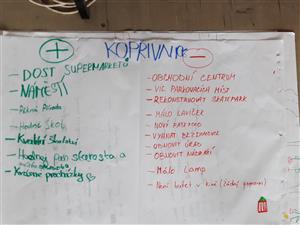 KOPŘIVNICE
+
DOST SUPERMARKETŮ
NÁMĚSTÍ
Pěkná Příroda
Hodně škol
Kvalitní školství
Hodný Pan starosta a
Krásné procházky
−
OBCHODNÍ CENTRUM
VÍC PARKOVACÍCH MÍST
REKONSTRUOVAT SKATEPARK
MÁLO LAVIČEK
NOVÝ
VYHNAT BEZDOMOVCE
OBNOVIT ÚŘAD
OBNOVIT NÁDRAŽÍ
Málo Lamp
Není bufet v kině (žádný popcorn)